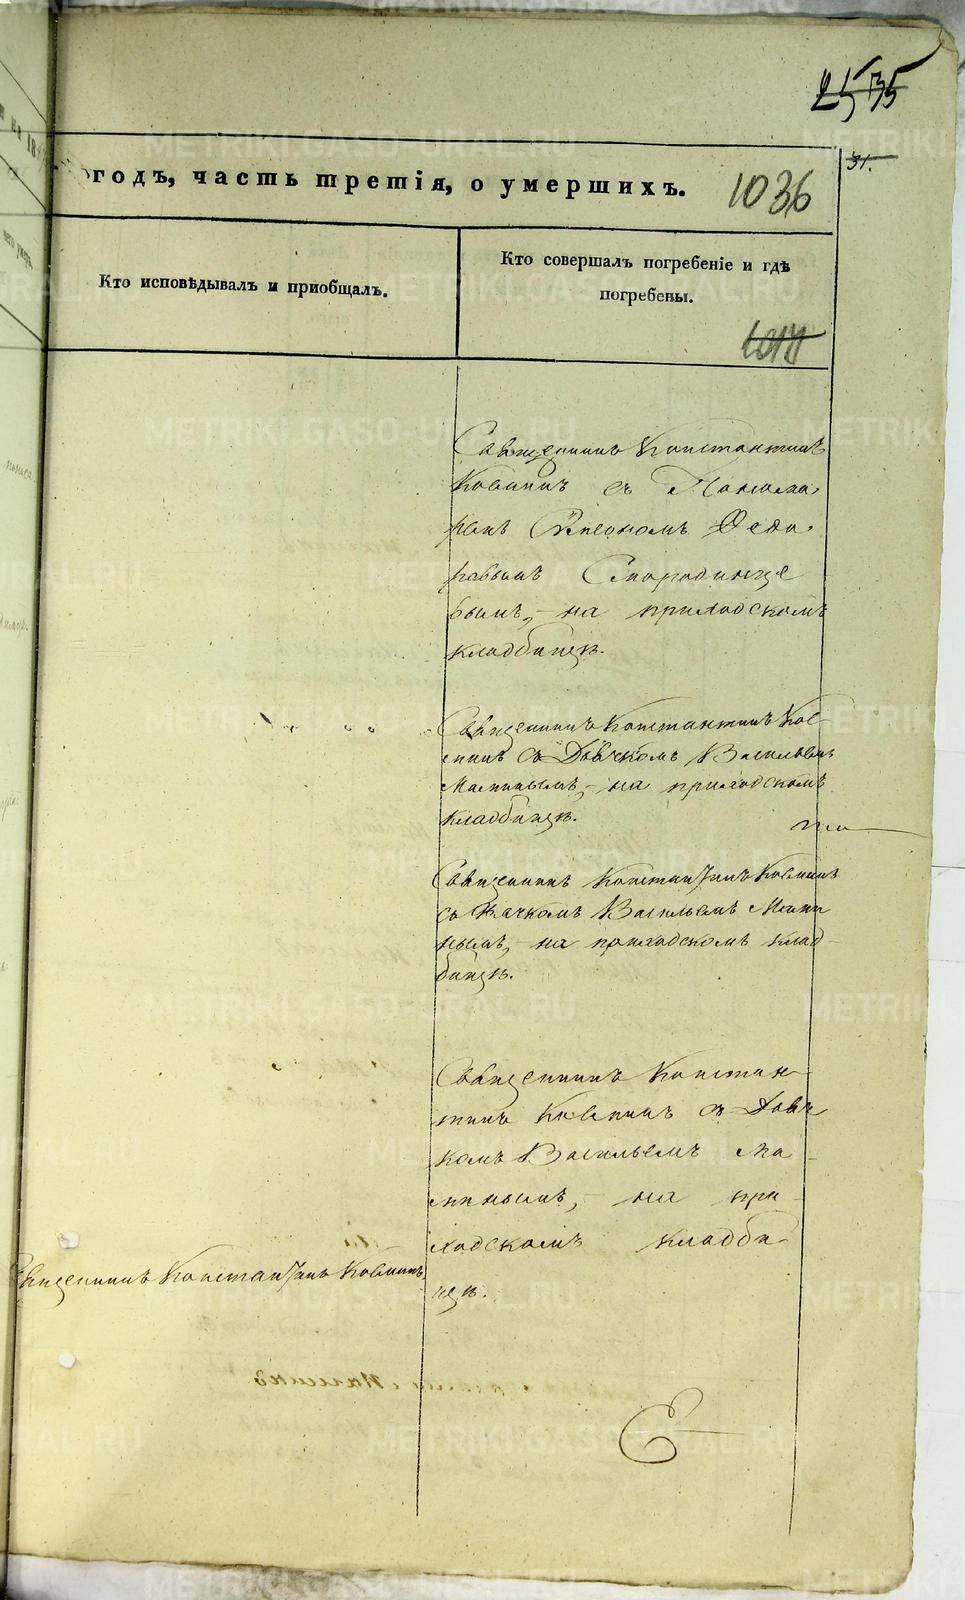 31.
годъ, часть третія, о умершихъ.
1036
Кто исповѣдывалъ и пріобщалъ.
Кто совершалъ погребеніе и гдѣ
погребены.
Священникъ Константинъ
съ Понома-
ремъ Ѳедо-
ровымъ Смородинце
вымъ, на приходскомъ
кладбищѣ.
Священникъ Константинъ
съ Дьячкомъ Васильемъ
на приходскомъ
кладбищѣ.
Священникъ Константинъ
съ Дьячкомъ Васильемъ
на приходскомъ клад-
бищѣ.
Священникъ Констан-
тинъ съ Дьяч
комъ Васильемъ
на при-
ходскомъ кладби-
щѣ.
Священникъ Константинъ
METRIKI.GASO-URAL.RU